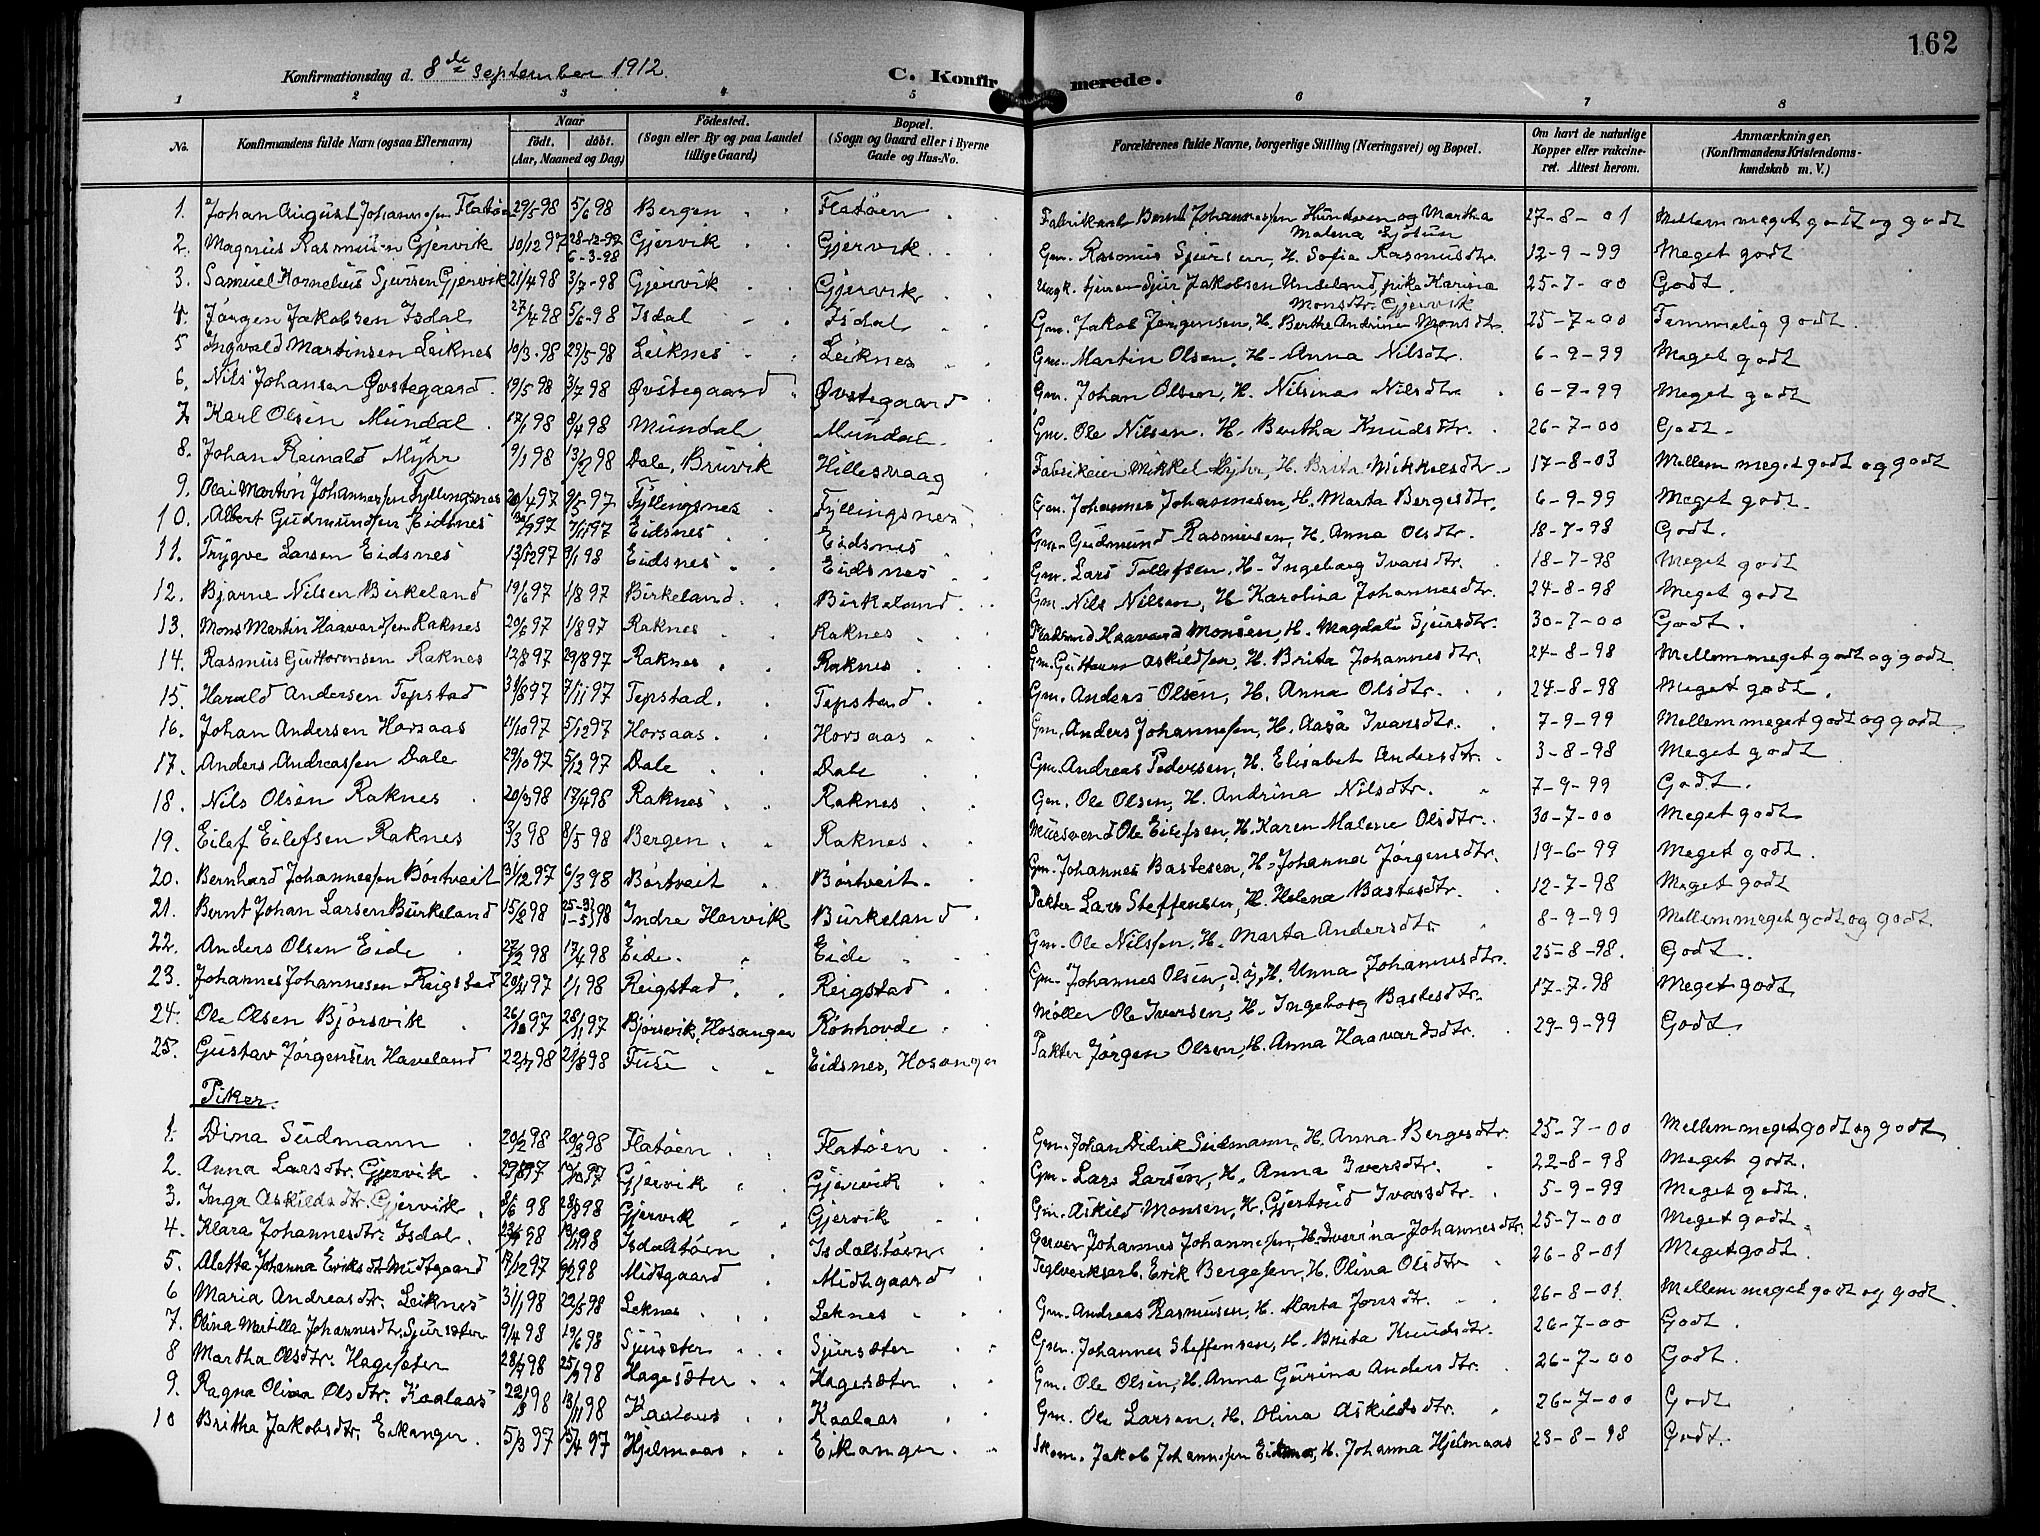 162
Konfirmationsdag d. 8de september 1912. C. Konfirmerede.
1 2 3 4 5 6 7 8
No. Konfirmandens fulde Navn (ogsaa Efternavn) Naar født. døbt. (Aar, Maaned og Dag) Fødested. (Sogn eller By og paa Landet tillige Gaard) Bopæl. (Sogn og Gaard eller i Byerne Gade og Hus-No. Forældrenes fulde Navne, borgerlige Stilling (Næringsvei) og Bopæl. Om havt de naturlige Kopper eller vakcineret. Attest herom. Anmærkninger. (Konfirmandens Kristendomskundskab m. V.)
1. Johan August Johannessen Flatøen 29/5 98 5/6 98 Bergen Flatøen Fabrikant Bernt Johannessen Hundven og Martha Malena Ejstun 27-8-01 Mellem meget godt og godt
2. Magnus Rasmussen Gjervik 10/12 97 28-12-97 6-3-98 Gjervik Gjervik Gm. Rasmus Sjursen, H. Sofie Rasmusdtr. 12-9-99 Meget godt
3. Samuel Kornelius Sjursen Gjervik 21/4 98 3/7-98 Gjervik Gjervik Ungk. Sjur Jakobsen Undeland pike Karina Monsdtr. Gjervik 25-7-00 Godt.
4. Jørgen Jakobsen Isdal 27/4 98 5/6-98 Isdal Isdal Gm. Jakob Jørgensen, H. Berthe Andrine Monsdtr. 25-7-00 Temmelig godt.
5 Ingvald Martinsen Leiknes 10/3-98 29/5-98 Leiknes Leiknes Gm. Martin Olsen, H. Anna Nilsdtr. 6-9-99 Meget godt
6. Nils Johansen Øvstegaard. 19/5 98 3/7 98 Øvstegaard Øvstegaard Gm. Johan Olsen, H. Nilsina Nilsdtr. 6-9-99 Meget godt
7. Karl Olsen Mundal 17/1 98 8/4 98 Mundal Mundal Gm. Ole Nilsen. H. Bertha Knudsdtr. 26-7-00 Godt.
8. Johan Reinald Myhr 9/1 98 13/2 98 Dale, Bruvik Hillesvaag Fabrikeier Mikkel Myhr, H. Brita Mikkelsdtr. 17-8-03 Mellem meget godt og godt
9. Olai Martin Johannessen Fyllingsnes 20/4 97 9/5 97 Fyllingsnes Fyllingsnes Gm. Johannes Johannesen, H. Marta Bergesdtr. 6-9-99 Meget godt.
10. Albert Gudmundsen Eidsnes 97 7/11 97 Eidsnes Eidsnes Gm. Gudmund Rasmusen, H. Anna Olsdtr. 18-7-98 Godt.
11. Trygve Larsen Eidsnes 13/12 97 9/1 98 Eidsnes Eidsnes Gm. Lars Tollefsen, H. Ingeborg Ivarsdtr. 18-7-98 Meget godt
12. Bjarne Nilsen Birkeland 19/6 97 1/8 97 Birkeland. Birkeland. Gm. Nils Nilsen, H. Karolina Johannesdtr. 24-8-98 Meget godt
13. Mons Martin Haavardsen Raknes 20/6 97 1/8 97 Raknes Raknes Pladsmd Haavard Monsen, H. Magdali Sjursdtr. 30-7-00 Godt.
14. Rasmus Guttormsen Raknes 12/8 97 29/8 97 Raknes Raknes Gm. Guttorm Askildsen, H. Brita Johannesdtr. 24-8-98 Mellem meget godt og godt
15. Harald Andersen Tepstad 31/8 97 7/11 97 Tepstad. Tepstad. Gm. Anders Olsen, H. Anna Olsdtr. 24-8-98 Meget godt.
16. Johan Andersen Horsaas 11/10 97 5/12 97 Horsaas. Horsaas Gm. Anders Johannessen, H. Aasa Ivarsdtr. 7-9-99 Mellem meget godt og godt
17. Anders Andreassen Dale 29/10 97 5/12 97 Dale Dale Gm. Andreas Pedersen, H. Elisabet Andersdtr. 3-8-98 Meget godt
18. Nils Olsen Raknes 20/3 98 17/4 98 Raknes Raknes Gm. Ole Olsen, H. Andrina Nilsdtr. 7-9-99 Godt.
19. Eilef Eilefsen Raknes 3/3 98 8/5 98 Bergen Raknes Ole Eilefsen, H. Karen Malene Olsdtr. 30-7-00 Meget godt
20. Bernhard Johannessen Børtveit 31/12 97 6/3 98 Børtveit Børtveit. Gm. Johannes Bastesen, H. Johanna Jørgensdtr. 19-6-99 Meget godt.
21. Bernt Johan Larsen Burkeland 15/2 98 25-3 1-5 98 Indre Horvik Burkeland Pakter Lars Steffensen, H. Helena Bastesdtr. 12-7-98 Meget godt
22. Anders Olsen Eide 27/2 98 17/4 98 Eide. Eide Gm. Ole Nilssen, H. Marta Andersdtr. 8-9-99 Mellem meget godt og godt
23. Johannes Johannesen Reigstad 97 1/1 98 Reigstad Reigstad Gm. Johannes Olsen, H. Anna Johannesdtr. 25-8-98. Godt.
24. Ole Olsen Bjørsvik 26/10 97 28/11 97 Bjørsvik, Hosanger Rønhovde Møller Ole Iversen, H. Ingeborg Bastesdtr. 17-7-98 Meget godt
25. Gustav Jørgensen Haveland 98 98 Fuse Eidsnes, Hosanger Pakter Jørgen Olsen, H. Anna Haavardsdtr. 29-9-99 Godt.
Piker.
1. Dina Sudmann 20/2 98 20/3 98 Flatøen Flatøen Gm. Johan Didrik Sudmann, H. Anna Bergesdtr. 25-7-00 Mellem meget godt og godt
2. Anna Larsdtr. Gjervik 29/8 97 97 Gjervik Gjervik Gm. Lars Larsen, H. Anna Iversdtr. 22-8-98 Meget godt.
3. Inga Askildsdtr. Gjervik 8/6 98 28/8 98 Gjervik Gjervik Gm. Askild Monsen, H. Gjertrud Ivarsdtr. 5-9-99 Meget godt.
4. Klara Johannesdtr. Isdal. 98 98 Isdalstøen Isdalstøen Garver Johannes Johannessen, H. Iverina Johannesdtr. 25-7-00 Meget godt.
5. Aletta Johanna Eriksdtr. Midtgaard 97 98 Midtgaard Midtgaard Teglverksarb. Erik Bergesen, H. Olina Olsdtr 26-8-01 Meget godt.
6 Maria Andreasdtr. Leiknes 31/1 98 22/5 98 Leknes Leknes Gm. Andreas Rasmusen, H. Marta Jonsdtr. 26-8-01. Mellem meget godt og godt.
7. Olina Martilla Johannesdtr. Sjursæter 9/4 98 19/6 98 Sjursæter Sjursæter Gm. Johannes Steffensen, H. Brita Knudsdtr. 26-7-00 Godt.
8 Martha Olsdtr. Hagesæter 98 98 Hagesæter Hagesæter Gm. Ole Olsen, H. Anna Gurina Andersdtr. 26-7-00 Godt.
9. Ragna Olina Olsdtr. Kaalaas 98 13/11 98 Kaalaas Kaalaas Gm. Ole Larsen, H. Olina Askildsdtr. 26-7-00 Godt
10 Britha Jakobsdtr. Eikanger. 5/3 97 97 Hjelmaas Eikanger Skom. Jakob Johannssen, H. Johanna Hjelmaas 23-8-98 Godt.